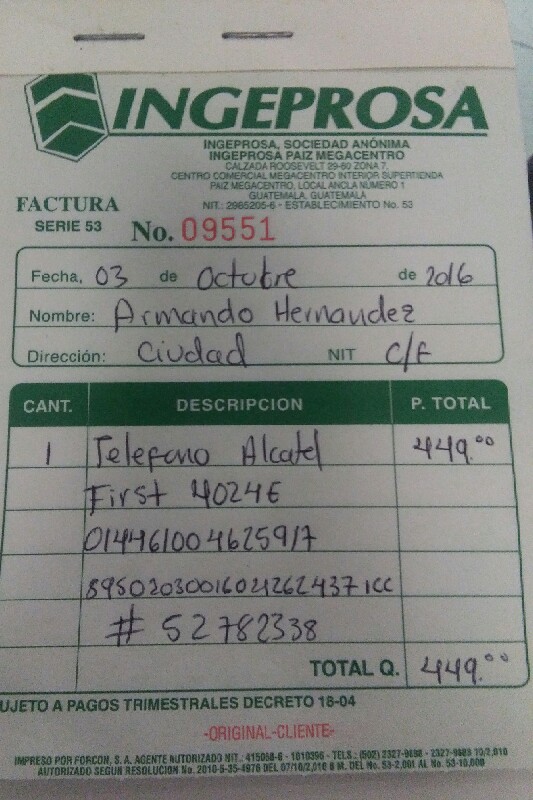 INGEPROSA
INGEPROSA, SOCIEDAD ANÓNIMA
INGEPROSA PAIZ MEGACENTRO
CALZADA ROOSEVELT 29-60 ZONA 7,
CENTRO COMERCIAL MEGACENTRO INTERIOR SUPERTIENDA
PAIZ MEGACENTRO, LOCAL ANCLA NUMERO 1
GUATEMALA, GUATEMALA.
NIT.: 2965205-6 - ESTABLECIMIENTO No. 53
FACTURA
SERIE 53 No. 09551
Fecha, 03 de Octubre de 2016
Nombre: Armando Hernandez
Dirección: Ciudad NIT C/F
CANT. DESCRIPCION P. TOTAL
1 Telefono Alcatel 449.00
First 4024E
014461004625917
8950203001602126243 7 ICC
# 52782338
TOTAL Q. 449.00
UJETO A PAGOS TRIMESTRALES DECRETO 18-04
-ORIGINAL-CLIENTE-
IMPRESO POR FORCON, S. A. AGENTE AUTORIZADO NIT.: - TELS.: (502)
AUTORIZADO SEGUN RESOLUCION No.